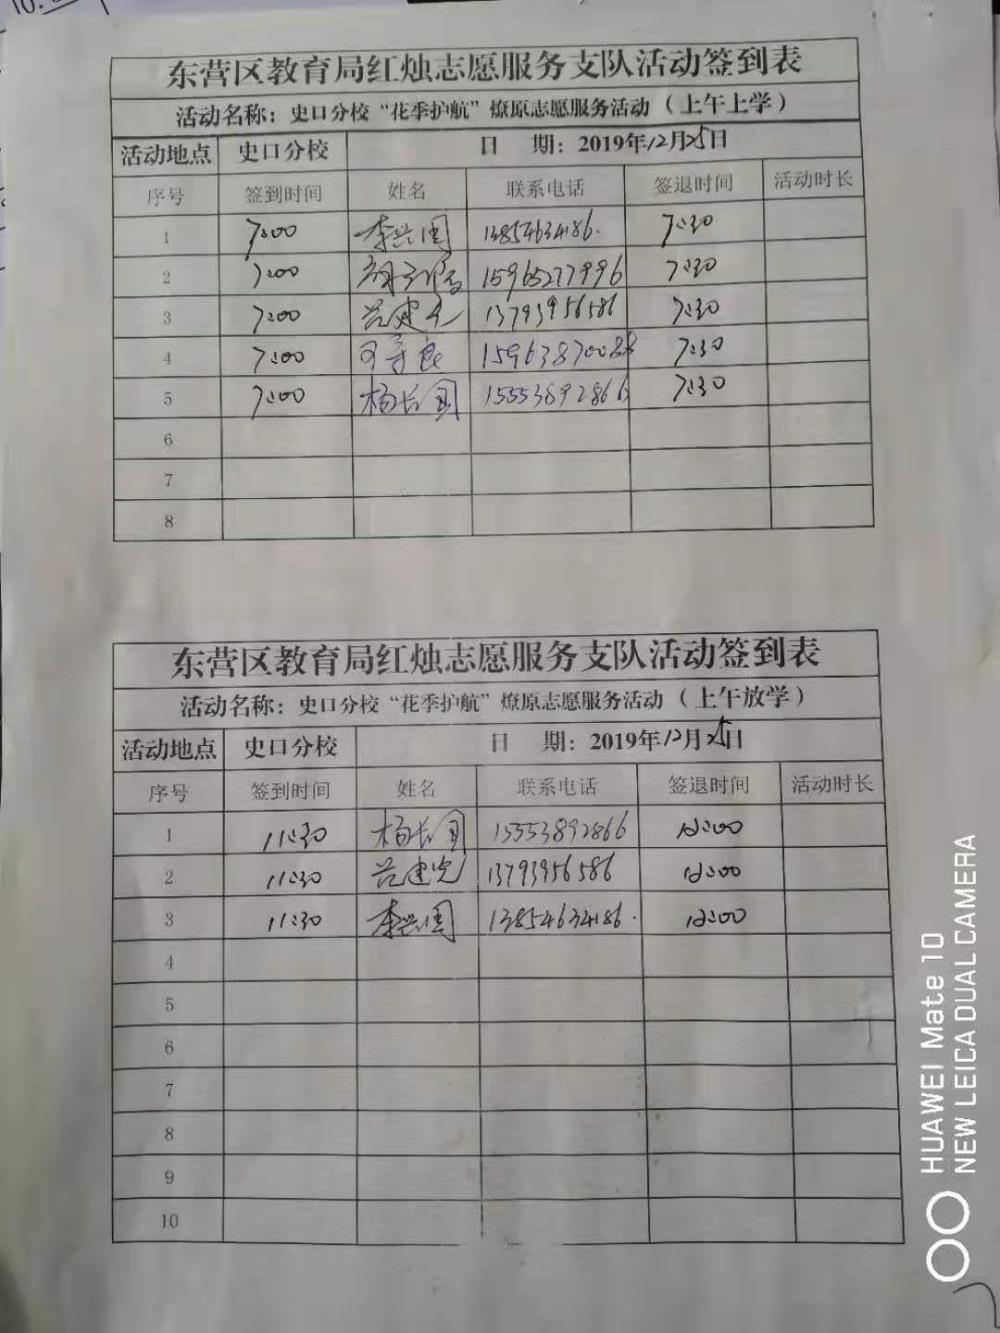 东营区教育局红烛志愿服务支队活动签到表
活动名称：史口分校“花季护航”燎原志愿服务活动（上午上学）
活动地点 史口分校 日 期：2019年12月25日
序号 签到时间 姓名 联系电话 签退时间 活动时长
1 7:00 李兴国 13854634186. 7:30
2 7:00 15965277996 7:30
3 7:00 吕建光 13793956586 7:30
4 7:00 15963870088 7:30
5 7:00 杨长国 15553892866 7:30
6
7
8
东营区教育局红烛志愿服务支队活动签到表
活动名称：史口分校“花季护航”燎原志愿服务活动（上午放学）
活动地点 史口分校 日 期：2019年12月25日
序号 签到时间 姓名 联系电话 签退时间 活动时长
1 11:30 杨长国 15553892866 12:00
2 11:30 吕建光 13793956586 12:00
3 11:30 李兴国 13854634186. 12:00
4
5
6
7
8
9
10
HUAWEI Mate 10
NEW LEICA DUAL CAMERA